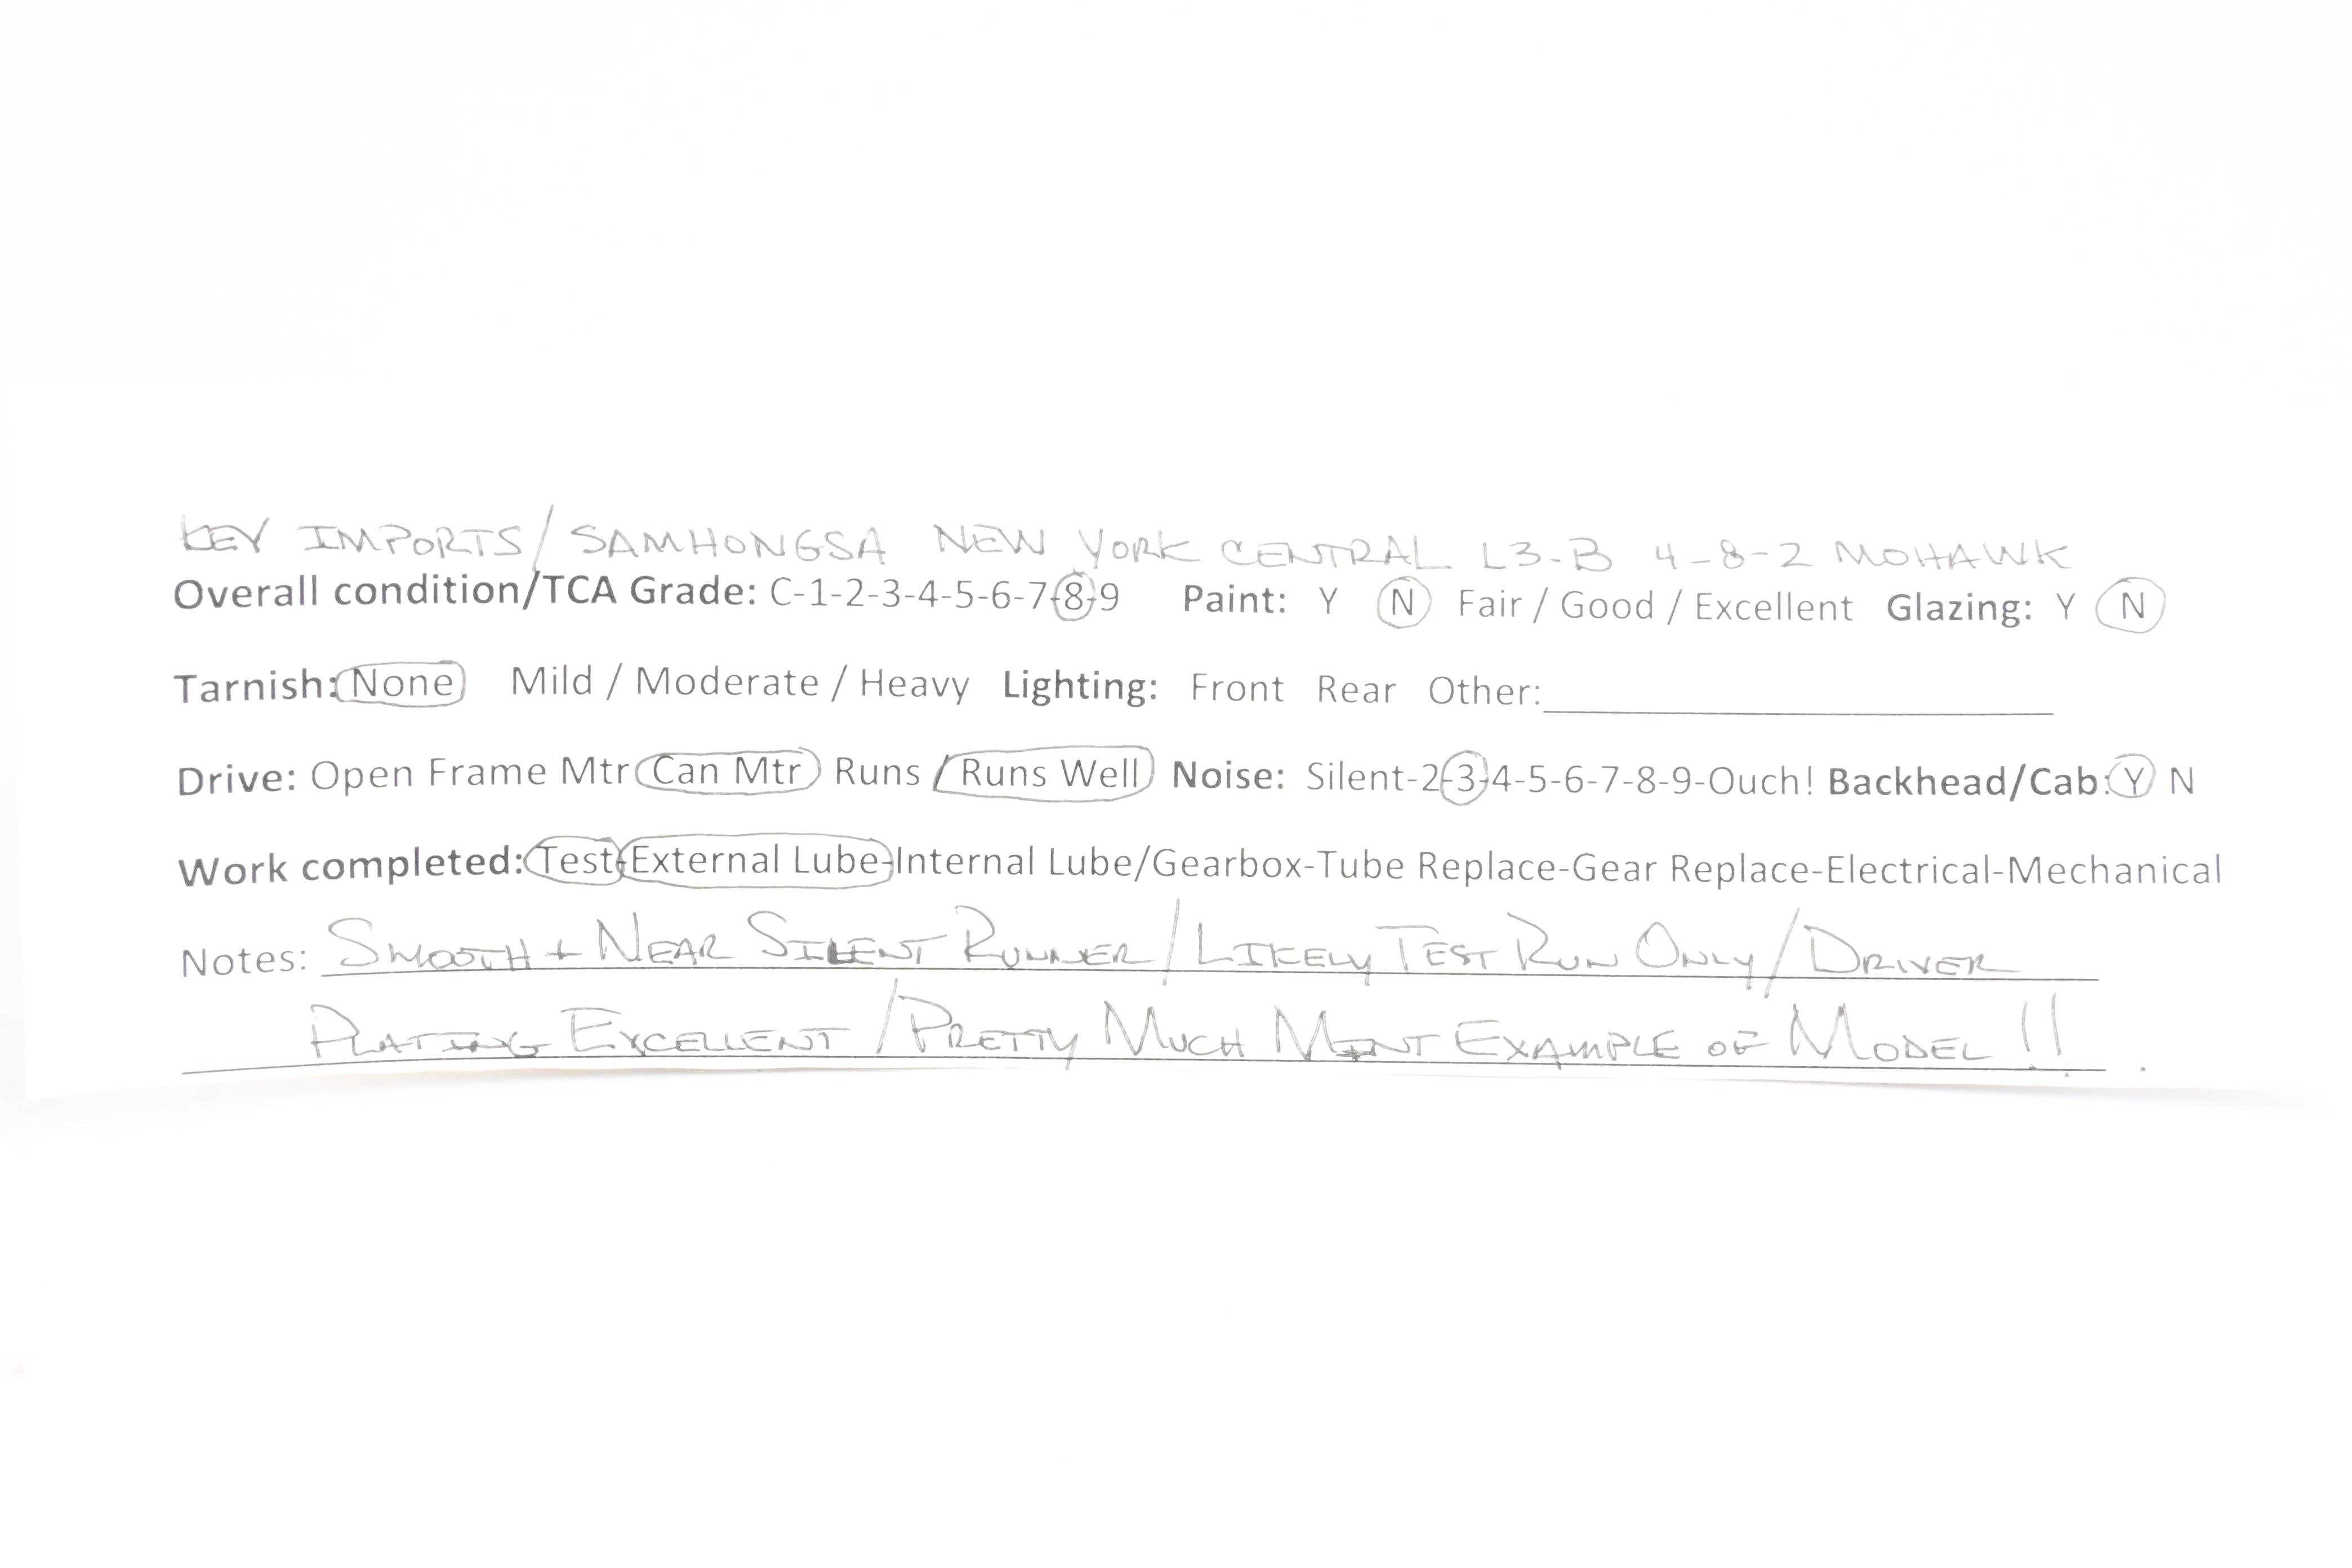 KEY IMPORTS/SAMHONGSA NEW YORK CENTRAL L3-B 4-8-2 MOHAWK
Overall condition/TCA Grade: C-1-2-3-4-5-6-7-8-9 Paint: Y N Fair / Good / Excellent Glazing: Y N
Tarnish: None Mild / Moderate / Heavy Lighting: Front Rear Other:
Drive: Open Frame Mtr Can Mtr Runs / Runs Well Noise: Silent-2-3-4-5-6-7-8-9-Ouch! Backhead/Cab: Y N
Work completed: Test-External Lube-Internal Lube/Gearbox-Tube Replace-Gear Replace-Electrical-Mechanical
Notes: SMOOTH + NEAR SILENT RUNNER/LIKELY TEST RUN ONLY/DRIVER
PLATING EXCELLENT/PRETTY MUCH MINT EXAMPLE OF MODEL !!